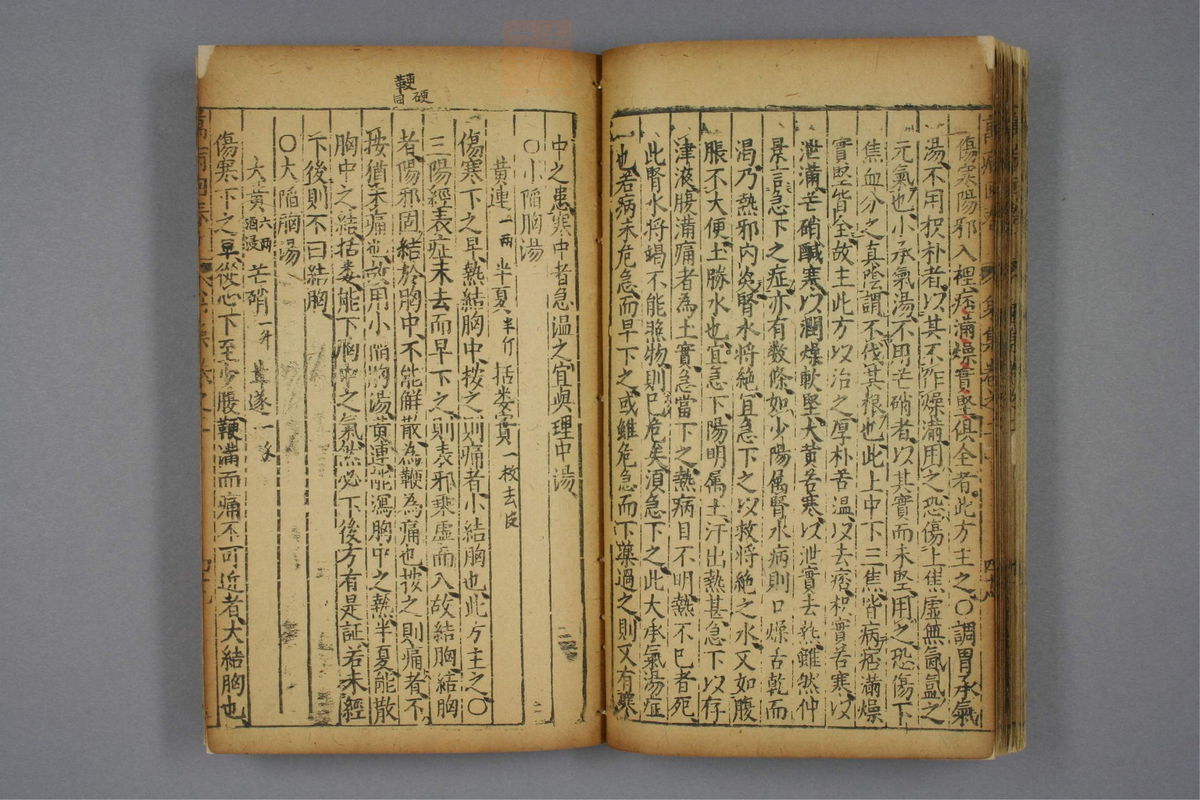 傷寒陽邪入裡痞滿燥實堅俱全者此方主之○調胃承氣
湯不用枳朴者以其不作燥滿用之恐傷上焦虛無氤氳之
元氣也小承氣湯不用芒硝者以其實而未堅用之恐傷下
焦血分之真陰謂不伐其根也此上中下三焦皆病痞滿燥
實堅皆全故主此方以治之厚朴苦温以去痞枳實苦寒以
泄滿芒硝鹹寒以潤燥軟堅大黃苦寒以泄實去熱雖然仲
景言急下之症亦有数條如少陽属腎水病則口燥舌乾而
渴乃熱邪内炎腎水將絶宜急下之以救將絶之水又如腹
脹不大便土勝水也宜急下陽明属土汗出熱甚急下以存
津液腹滿痛者為土實急當下之熱病目不明熱不已者死
此腎水将竭不能照物則已危矣須急下之此大承氣湯症
也若病未危急而早下之或雖危急而下藥過之則又有寒
鞕硬同
中之患寒中者急溫之宜與理中湯
○小陷胸湯
黄連一兩 半夏半斤 括蔞實一枚去皮
傷寒下之早熱結胸中按之則痛者小結胸也此方主之○
三陽經表症未去而早下之則表邪乘虛而入故結胸結胸
者陽邪固結於胸中不能解散為鞕為痛也按之則痛者不
按猶未痛也故用小陷胸湯黄連能瀉胸中之熱半夏能散
胸中之結括蔞能下胸中之氣然必下後方有是証若未經
下後則不曰結胸
○大陷胸湯
大黃六兩酒浸 芒硝一升 甘遂一
傷寒下之早從心下至少腹鞕滿而痛不可近者大結胸也